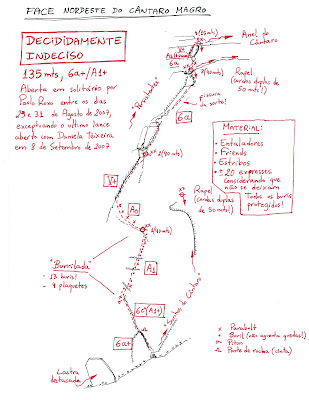 FACE NORDESTE DO CÂNTARO MAGRO
DECIDIDAMENTE
INDECISO
135 mts, 6a+/A1+
Aberta em solitário por
Paulo Roxo entre os dias
29 e 31 de Agosto de 2007,
exceptuando o último lance
aberto com Daniela Teixeira
em 8 de Setembro de 2007
Anel do
Cântaro
6a
Rapel
(cordas duplas de
50 mts!)
"Pesadelos"
fissura
de sorte!
6a
MATERIAL:
• Entaladores
• Friends
• Estribos
• ± 20 expresses
considerando que
não se deixam
Todos os buris
protegidos!
V+
Rapel
(cordas duplas
de 50 mts!)
A0
"Burrilada"
- 13 buris!
- 4 plaquetes
A1
6c (A1+)
6a+
"Sombras do Cântaro"
Lastra
destacada
x Parabolt
• Buril (não aguenta quedas!)
Piton
Ponte de rocha (cinta)